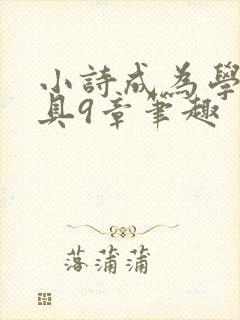 小詩成為學
具9章筆趣
落蒲蒲